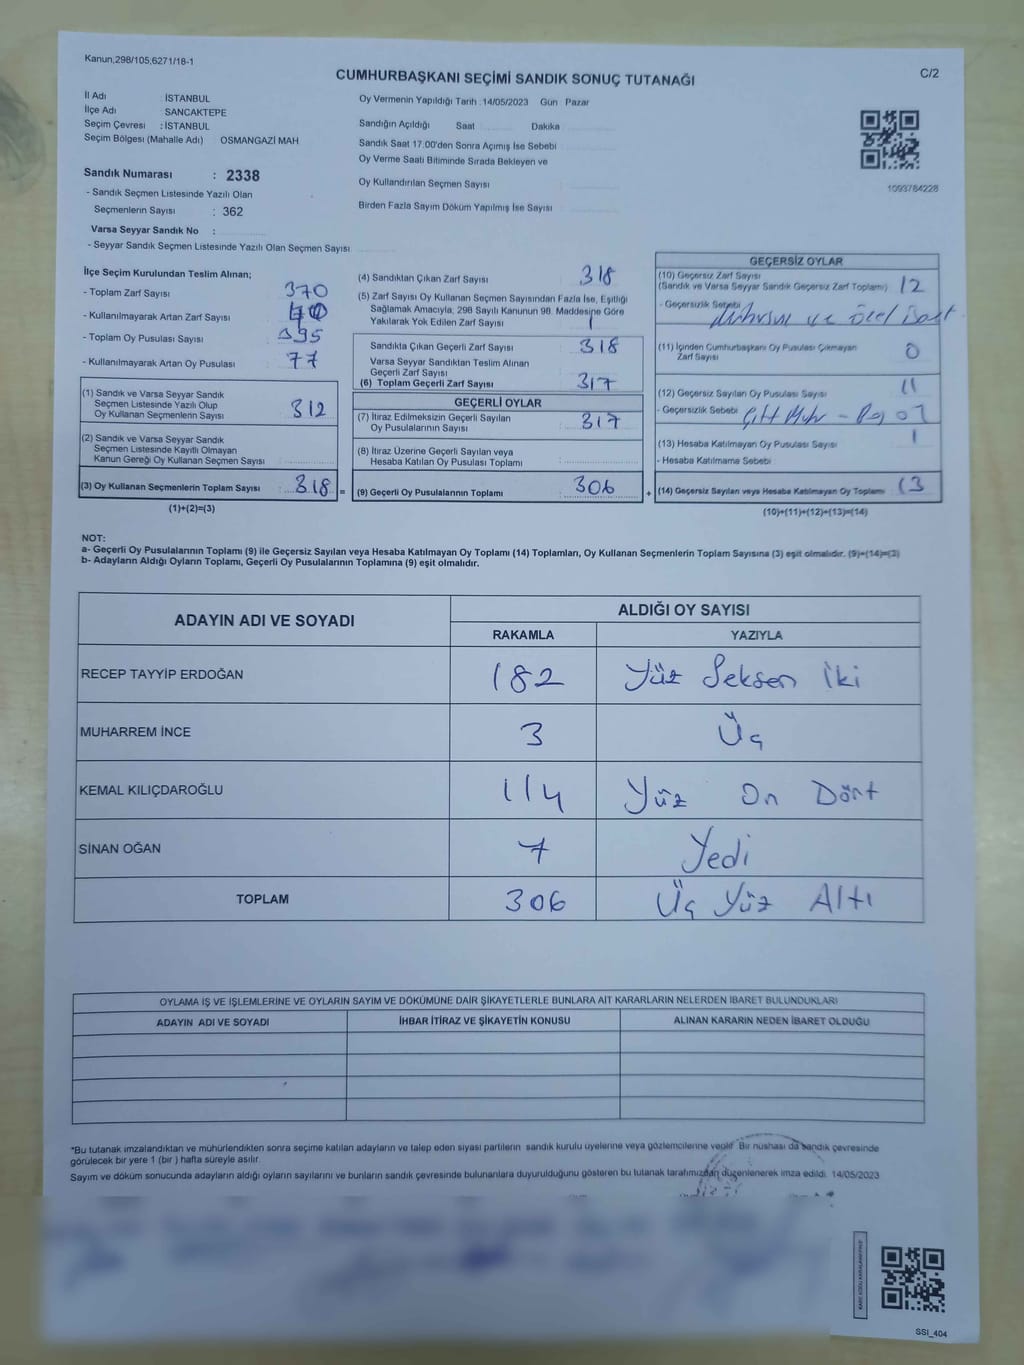 Kanun,298/105;6271/18-1
C/2
CUMHURBAŞKANI SEÇİMİ SANDIK SONUÇ TUTANAĞI
İl Adı İSTANBUL
İlçe Adı : SANCAKTEPE
Seçim Çevresi : İSTANBUL
Seçim Bölgesi (Mahalle Adı) OSMANGAZİ MAH
Sandık Numarası : 2338
- Sandık Seçmen Listesinde Yazılı Olan
Seçmenlerin Sayısı : 362
Varsa Seyyar Sandık No :
- Seyyar Sandık Seçmen Listesinde Yazılı Olan Seçmen Sayısı
Oy Vermenin Yapıldığı Tarih : 14/05/2023 Gün Pazar
Sandığın Açıldığı Saat Dakika
Sandık Saat 17.00'den Sonra Açımış İse Sebebi
Oy Verme Saati Bitiminde Sırada Bekleyen ve
Oy Kullandırılan Seçmen Sayısı
Birden Fazla Sayım Döküm Yapılmış İse Sayısı
1093784228
İlçe Seçim Kurulundan Teslim Alınan;
- Toplam Zarf Sayısı 370
- Kullanılmayarak Artan Zarf Sayısı
- Toplam Oy Pusulası Sayısı 395
- Kullanılmayarak Artan Oy Pusulası 77
(1) Sandık ve Varsa Seyyar Sandık
Seçmen Listesinde Yazılı Olup
Oy Kullanan Seçmenlerin Sayısı 312
(2) Sandık ve Varsa Seyyar Sandık
Seçmen Listesinde Kayıtlı Olmayan
Kanun Gereği Oy Kullanan Seçmen Sayısı
(3) Oy Kullanan Seçmenlerin Toplam Sayısı 318 =
(1)+(2)=(3)
(4) Sandıktan Çıkan Zarf Sayısı 318
(5) Zarf Sayısı Oy Kullanan Seçmen Sayısından Fazla İse, Eşitliği
Sağlamak Amacıyla, 298 Sayılı Kanunun 98. Maddesine Göre
Yakılarak Yok Edilen Zarf Sayısı 1
Sandıkta Çıkan Geçerli Zarf Sayısı 318
Varsa Seyyar Sandıktan Teslim Alınan
Geçerli Zarf Sayısı
(6) Toplam Geçerli Zarf Sayısı 317
GEÇERLİ OYLAR
(7) İtiraz Edilmeksizin Geçerli Sayılan
Oy Pusulalarının Sayısı 317
(8) İtiraz Üzerine Geçerli Sayılan veya
Hesaba Katılan Oy Pusulası Toplamı
(9) Geçerli Oy Pusulalarının Toplamı 306 +
GEÇERSİZ OYLAR
(10) Geçersiz Zarf Sayısı
(Sandık ve Varsa Seyyar Sandık Geçersiz Zarf Toplamı) 12
- Geçersizlik Sebebi Mühürsüz ve özel işaret
(11) İçinden Cumhurbaşkanı Oy Pusulası Çıkmayan
Zarf Sayısı 0
(12) Geçersiz Sayılan Oy Pusulası Sayısı 11
- Geçersizlik Sebebi Çift Mühr -
(13) Hesaba Katılmayan Oy Pusulası Sayısı 1
- Hesaba Katılmama Sebebi
(14) Geçersiz Sayılan veya Hesaba Katılmayan Oy Toplamı 13
(10)+(11)+(12)+(13)=(14)
NOT:
a- Geçerli Oy Pusulalarının Toplamı (9) ile Geçersiz Sayılan veya Hesaba Katılmayan Oy Toplamı (14) Toplamları, Oy Kullanan Seçmenlerin Toplam Sayısına (3) eşit olmalıdır. (9)+(14)=(3)
b- Adayların Aldığı Oyların Toplamı, Geçerli Oy Pusulalarının Toplamına (9) eşit olmalıdır.
ADAYIN ADI VE SOYADI ALDIĞI OY SAYISI
RAKAMLA YAZIYLA
RECEP TAYYİP ERDOĞAN 182 Yüz Seksen İki
MUHARREM İNCE 3 Üç
KEMAL KILIÇDAROĞLU 114 Yüz On Dört
SİNAN OĞAN 7 Yedi
TOPLAM 306 Üç Yüz Altı
OYLAMA İŞ VE İŞLEMLERİNE VE OYLARIN SAYIM VE DÖKÜMÜNE DAİR ŞİKAYETLERLE BUNLARA AİT KARARLARIN NELERDEN İBARET BULUNDUKLARI
ADAYIN ADI VE SOYADI İHBAR İTİRAZ VE ŞİKAYETİN KONUSU ALINAN KARARIN NEDEN İBARET OLDUĞU
*Bu tutanak imzalandıktan ve mühürlendikten sonra seçime katılan adayların ve talep eden siyasi partilerin sandık kurulu üyelerine veya gözlemcilerine verilir. Bir nüshası da sandık çevresinde
görülecek bir yere 1 (bir) hafta süreyle asılır.
Sayım ve döküm sonucunda adayların aldığı oyların sayılarını ve bunların sandık çevresinde bulunanlara duyurulduğunu gösteren bu tutanak tarafımızdan düzenlenerek imza edildi. 14/05/2023
SSI_404